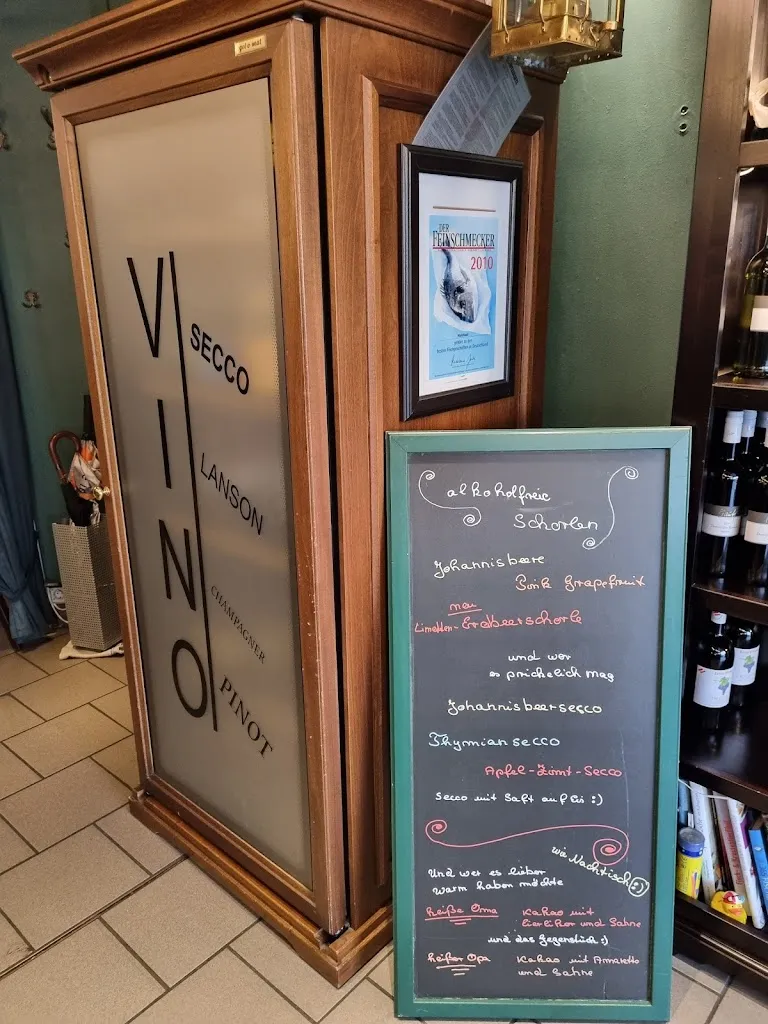 gelo mat
V
I
N
O
SECCO
LANSON
CHAMPAGNER
PINOT
DER
FEINSCHMECKER
2010
alkoholfreie
Schorlen
Johannisbeere
Pink Grapefruit
neu
Limetten-Erdbeerschorle
und wer
es prickelich mag
Johannisbeersecco
Thymiansecco
Apfel-Zimt-Secco
Secco mit Saft auf Eis :)
wie Nachtisch :)
Und wer es lieber
warm haben möchte
heiße Oma
Kakao mit
Eierlikör und Sahne
und das Gegenstück :)
heißer Opa
Kakao mit Amaretto
und Sahne